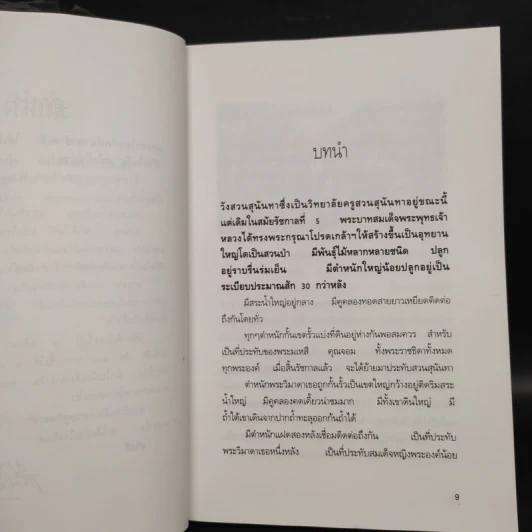 บทนำ
วังสวนสุนันทาซึ่งเป็นวิทยาลัยครูสวนสุนันทาอยู่ขณะนี้
แต่เดิมในสมัยรัชกาลที่ 5 พระบาทสมเด็จพระพุทธเจ้า
หลวงได้ทรงพระกรุณาโปรดเกล้าฯให้สร้างขึ้นเป็นอุทยาน
ใหญ่โตเป็นสวนป่า มีพันธุ์ไม้หลากหลายชนิด ปลูก
อยู่ราบรื่นร่มเย็น มีตำหนักใหญ่น้อยปลูกอยู่เป็น
ระเบียบประมาณสัก 30 กว่าหลัง
มีสระน้ำใหญ่อยู่กลาง มีคูคลองทอดสายยาวเหยียดติดต่อ
ถึงกันโดยทั่ว
ทุกๆตำหนักกั้นเขตรั้วแบ่งที่ดินอยู่ห่างกันพอสมควร สำหรับ
เป็นที่ประทับของพระมเหสี คุณจอม ทั้งพระราชธิดาทั้งหมด
ทุกพระองค์ เมื่อสิ้นรัชกาลแล้ว จะได้ย้ายมาประทับสวนสุนันทา
ตำหนักพระวิมาดาเธอถูกกั้นรั้วเป็นเขตใหญ่กว้างอยู่ติดริมสระ
น้ำใหญ่ มีคูคลองคดเคี้ยวน่าชมมาก มีทั้งเขาดินใหญ่ มี
ถ้ำใต้เขาเดินจากปากถ้ำทะลุออกกันถ้ำได้
มีตำหนักแฝดสองหลังเชื่อมติดต่อถึงกัน เป็นที่ประทับ
พระวิมาดาเธอหนึ่งหลัง เป็นที่ประทับสมเด็จหญิงพระองค์น้อย
9